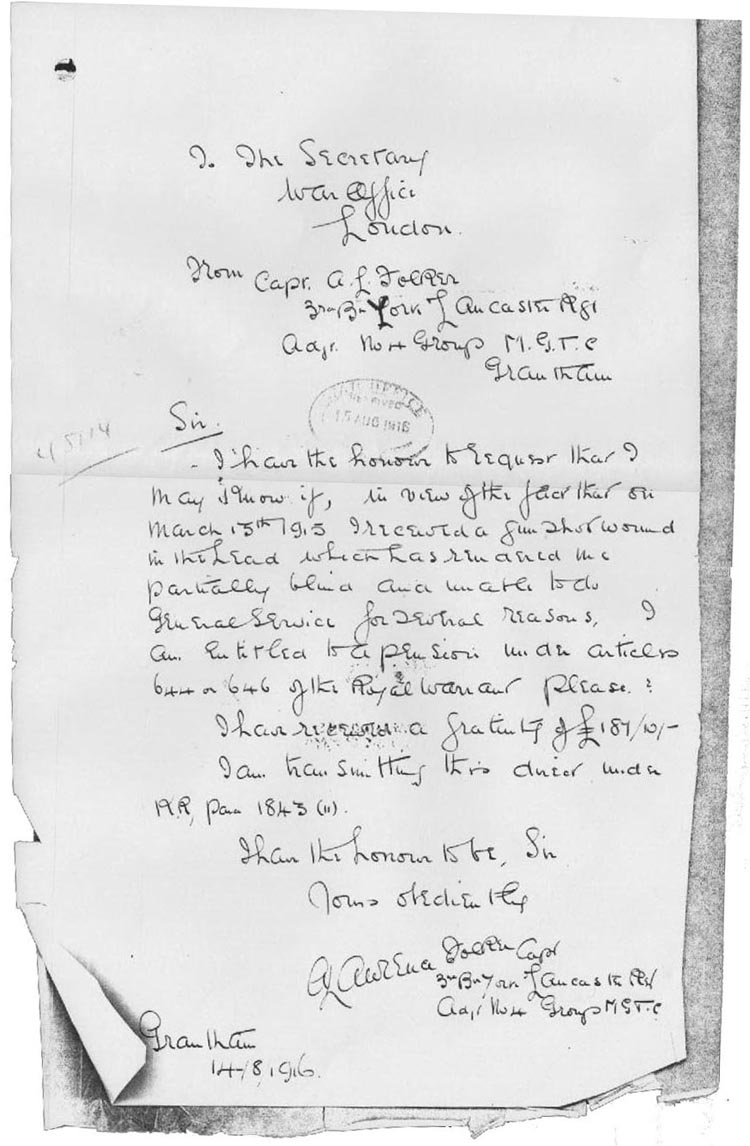 To The Secretary
War Office
London.
From Capt. A. L. Folker
3rd Bn York & Lancaster Rgt
Adjt. No 4 Group M.G.T.C
Grantham
WAR OFFICE
RECEIVED
15 AUG 1916
Sir.
I have the honour to request that I
may know if, in view of the fact that on
March 15th 1915 I received a gun shot wound
in the head which has rendered me
partially blind and unable to do
General Service for several reasons, I
am entitled to a pension under articles
644 or 646 of the Royal Warrant please ?
I have received a gratuity of £187/10/-
I am transmitting this direct under
K.R, para 1843 (11).
I have the honour to be, Sir
Yours obediently
A Lawrence Folker Capt
3rd Bn York & Lancaster Rgt
Adjt No 4 Group M.G.T.C
Grantham
14/8/1916.